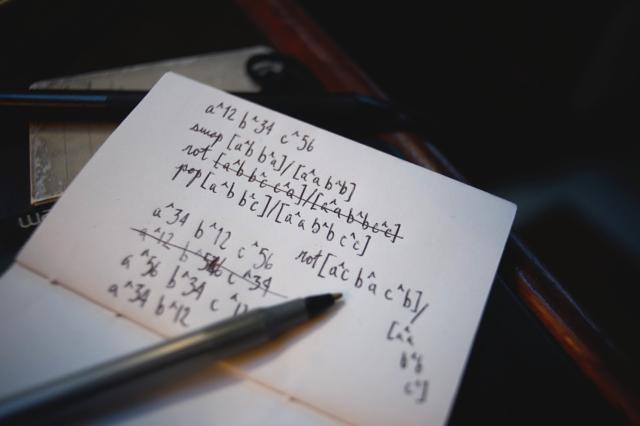 a^12 b^34 c^56
swap [a^b b^a]/[a^a b^b]
rot [a^b b^c c^a]/[a^a b^b c^c]
pop [a^b b^c]/[a^a b^b c^c]
a^34 b^12 c^56
a^12 b^ c^34
a^56 b^34 c^12
a^34 b^12
rot [a^c b^a c^b]/
[a^a
b^b
c^c]